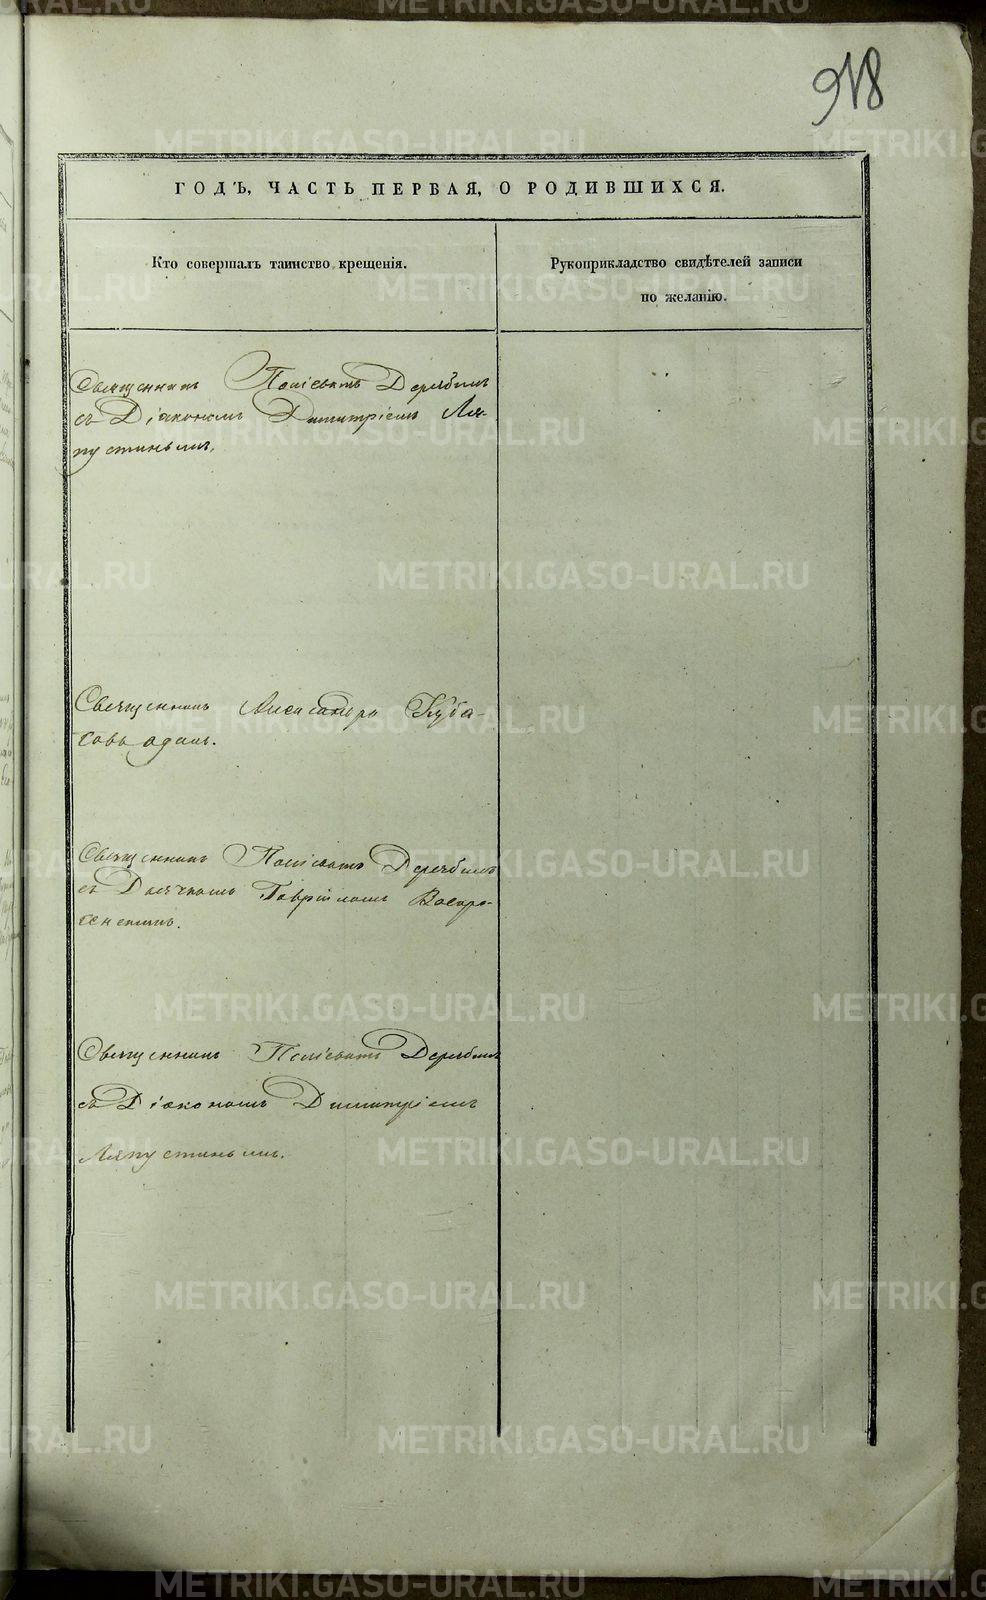 918
ГОДЪ, ЧАСТЬ ПЕРВАЯ, О РОДИВШИХСЯ.
Кто совершалъ таинство крещенія.
Рукоприкладство свидѣтелей записи
по желанію.
Священникъ Поліевктъ Дерябинъ
съ Діакономъ Димитріемъ Ля-
пустинымъ.
Священникъ Александръ Куба-
совъ одинъ.
Священникъ Поліевктъ Дерябинъ
съ Дьячкомъ Гавріиломъ Воскре-
сенскимъ.
Священникъ Поліевктъ Дерябинъ
съ Діакономъ Димитріемъ
Ляпустинымъ.
METRIKI.GASO-URAL.RU